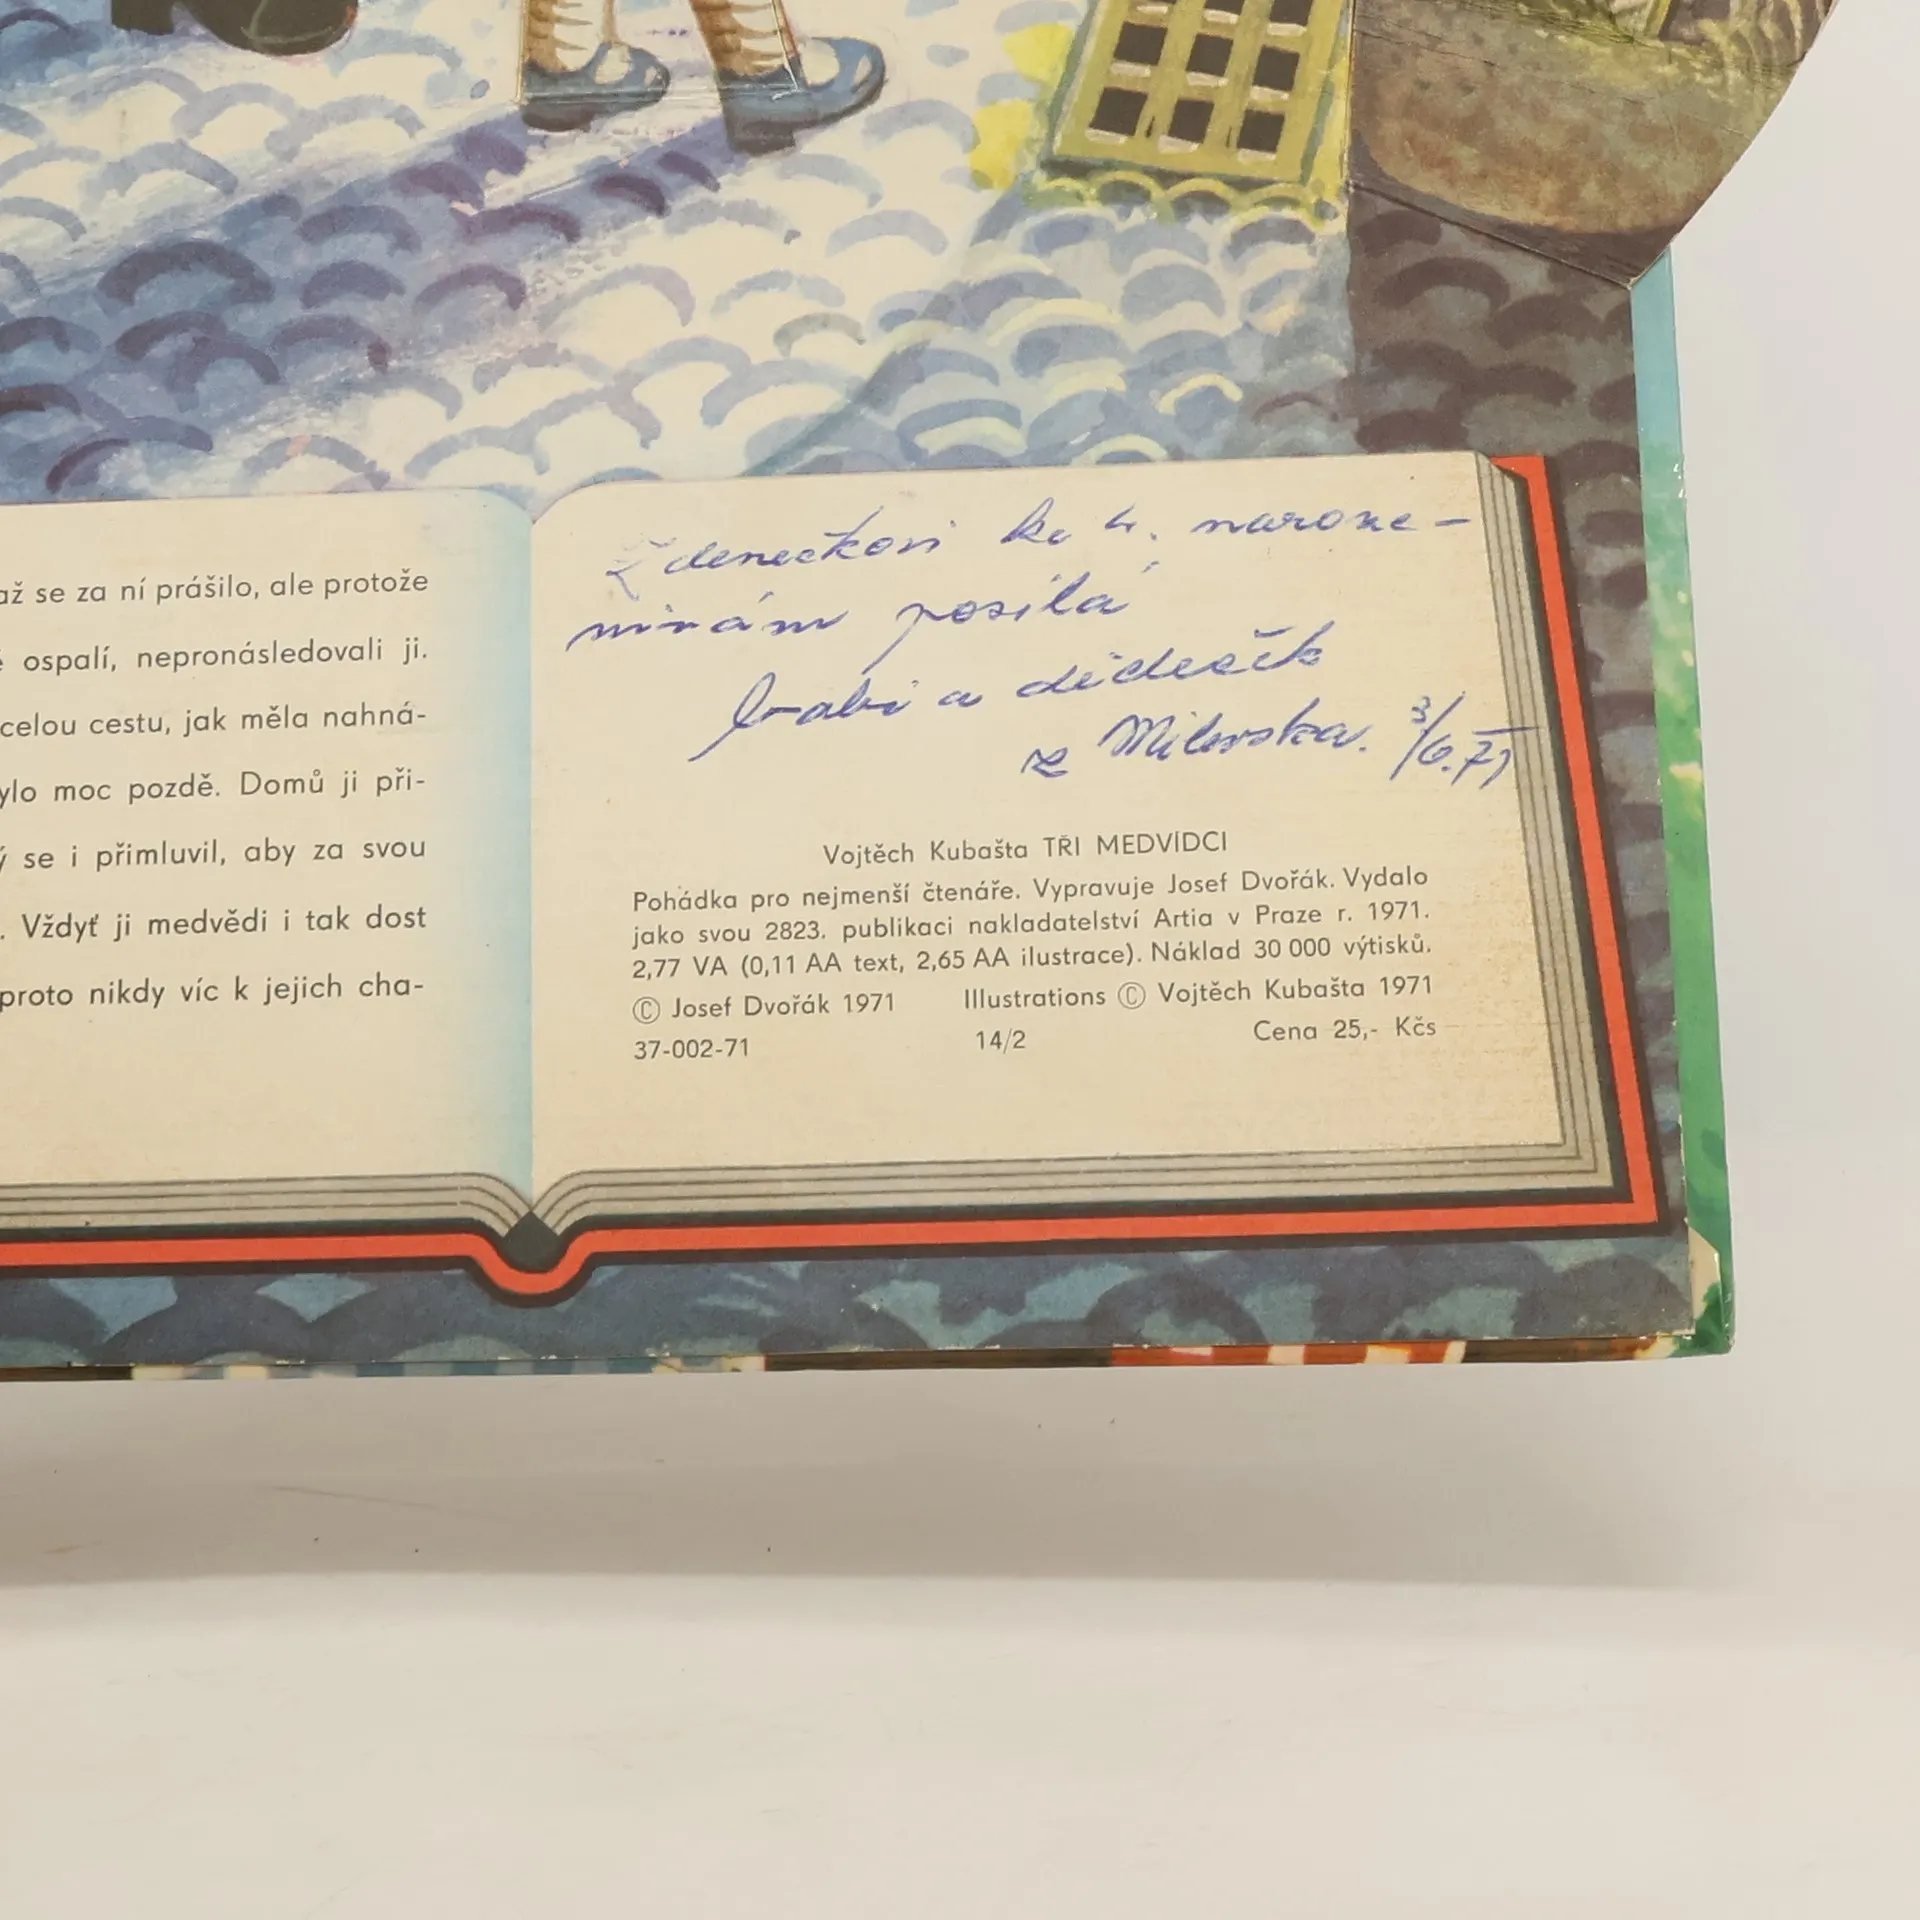 až se za ní prášilo, ale protože
ospalí, nepronásledovali ji.
celou cestu, jak měla nahná-
ylo moc pozdě. Domů ji při-
ý se i přimluvil, aby za svou
. Vždyť ji medvědi i tak dost
proto nikdy víc k jejich cha-
Zdenečkovi ke 4. naroze-
ninám posílá
babi a dědeček
z Milevska. 3/6.71
Vojtěch Kubašta TŘI MEDVÍDCI
Pohádka pro nejmenší čtenáře. Vypravuje Josef Dvořák. Vydalo
jako svou 2823. publikaci nakladatelství Artia v Praze r. 1971.
2,77 VA (0,11 AA text, 2,65 AA ilustrace). Náklad 30 000 výtisků.
© Josef Dvořák 1971 Illustrations © Vojtěch Kubašta 1971
37-002-71 14/2 Cena 25,- Kčs